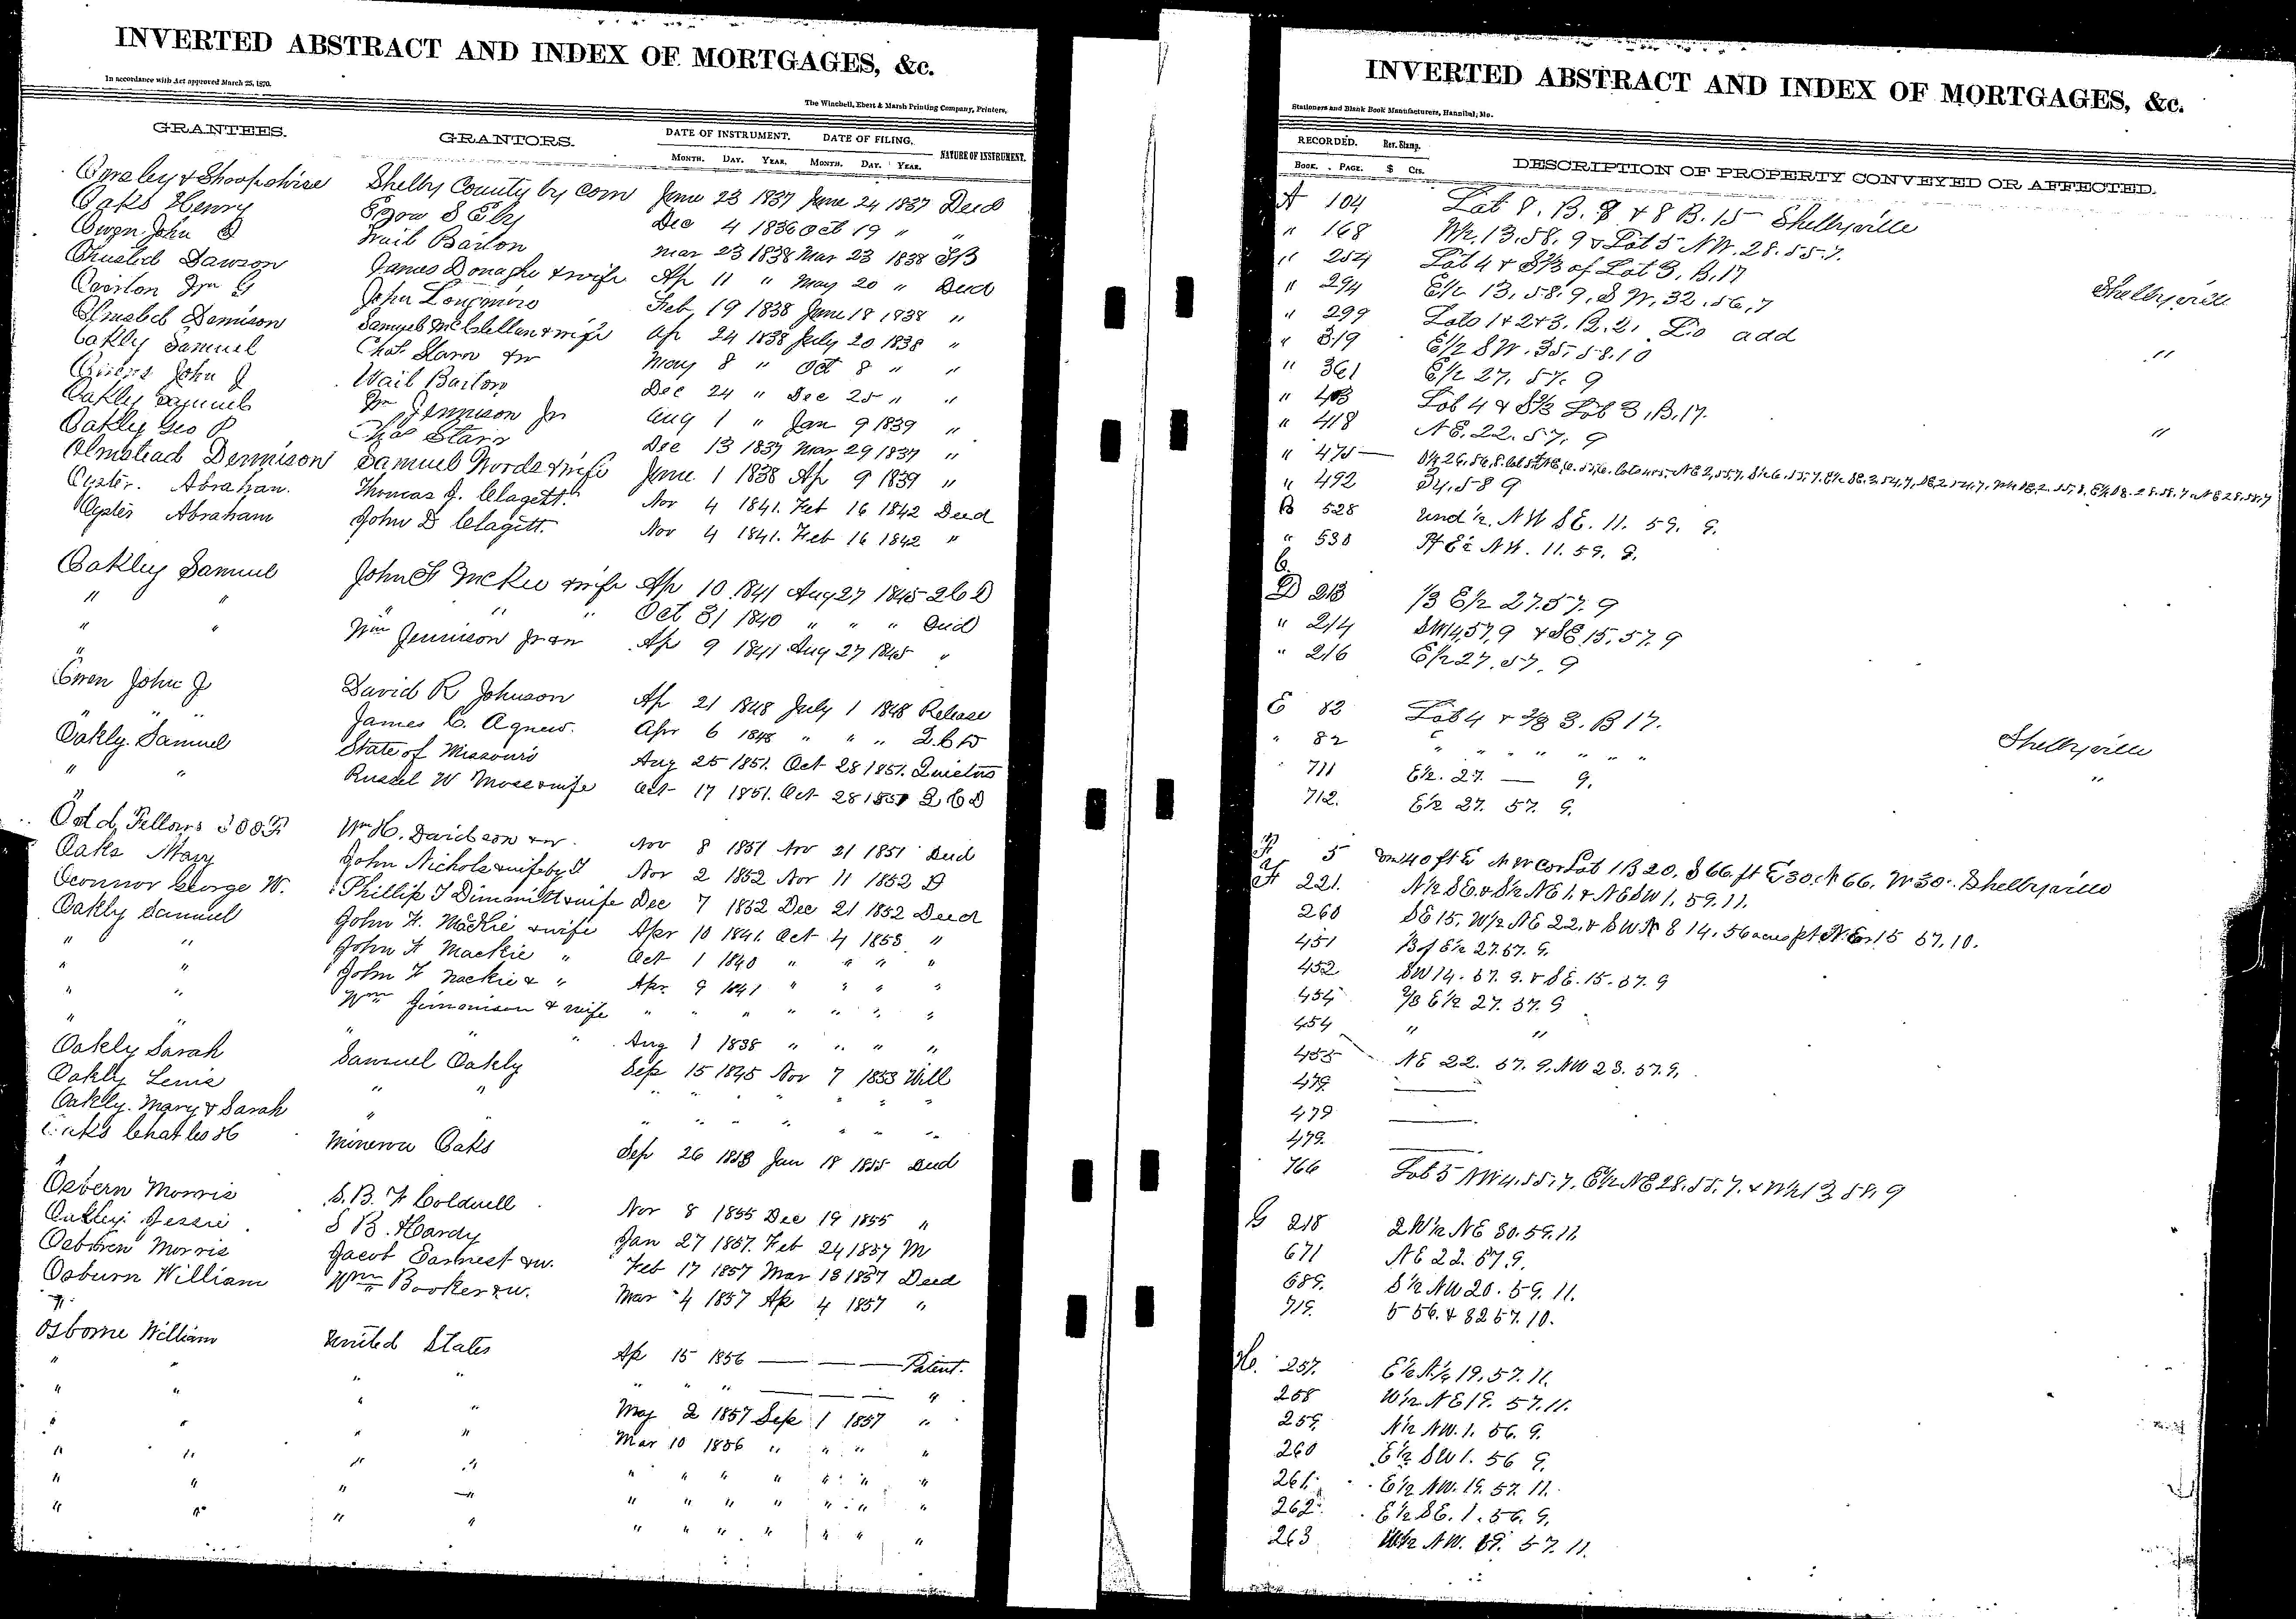 INVERTED ABSTRACT AND INDEX OF MORTGAGES, &c.
In accordance with Act approved March 25, 1870.
The Winchell, Ebert & Marsh Printing Company, Printers,
GRANTEES. GRANTORS. DATE OF INSTRUMENT. DATE OF FILING. NATURE OF INSTRUMENT.
MONTH. DAY. YEAR. MONTH. DAY. YEAR.
Shelby County by Com June 23 1837 June 24 1837 Deed
Oaks Henry Ezra S Ely Dec 4 1836 Oct 19 " "
Owen John Wait Barton Mar 23 1838 Mar 23 1838
Dawson James Donaghe & wife Ap 11 " May 20 " Deed
Wm G John Longmire Feb 19 1838 June 18 1838 "
Olmsted Denison Samuel McClellan & wife Ap 24 1838 July 20 1838 "
Oakly Samuel Chas Starr & w May 8 " Oct 8 " "
John J Wait Barton Dec 24 " Dec 25 " "
Oakly Samuel Wm Jennison Jr Aug 1 " Jan 9 1839 "
Oakly Geo P Chas Starr Dec 13 1837 Mar 29 1837 "
Olmstead Dennison Samuel Words & wife June 1 1838 Ap 9 1839 "
Oyster. Abraham. Thomas J. Clagett. Nov 4 1841. Feb 16 1842 Deed
Oyster Abraham John D Clagett. Nov 4 1841. Feb 16 1842 "
Oakley Samuel John F McKee & wife Ap 10 1841 Aug 27 1845 2 C D
" " " " " Oct 31 1840 " " " Deed
" " Wm Jennison Jr & w Ap 9 1841 Aug 27 1845 "
Owen John J David R Johnson Ap 21 1848 July 1 1848 Release
" " " James C. Agnew. Apr 6 1848 " " " 2 C D
Oakly. Samuel State of Missouri Aug 25 1851. Oct 28 1851. Quietus
" " Russel W Moss & wife Oct 17 1851. Oct 28 1851 2 C D
Odd Fellows I O O F Wm H. Davidson & w. Nov 8 1851 Nov 21 1851 Deed
Oaks Mary John Nichols & wife by Nov 2 1852 Nov 11 1852 D
Oconnor George W. Phillip J Dimmitt & wife Dec 7 1852 Dec 21 1852 Deed
Oakly Samuel John F. Mackie & wife Apr 10 1841. Oct 4 1853 "
" " John F Mackie " Oct 1 1840 " " " "
" " John F Mackie & " Apr. 9 1841 " " " "
" " Wm & wife " " " " " " "
" " " " Aug 1 1838 " " " "
Oakly Sarah Samuel Oakly Sep 15 1845 Nov 7 1853 Will
Oakly Lewis " " " " " " " " "
Oakly. Mary & Sarah " " " " " " " " "
Oaks Charles H Minerva Oaks Sep 26 1853 Jan 18 1855 Deed
Osbern Morris S. B. F Coldwell Nov 8 1855 Dec 19 1855 "
Oakley. Jessie. S B. Hardy Jan 27 1857. Feb 24 1857 M
Osburen Morris Jacob Earnest & w. Feb 17 1857 Mar 13 1857 Deed
Osburn William Wm Booker & w. Mar 4 1857 Ap 4 1857 "
Osborne William United States Ap 15 1856 — — — Patent.
" " " " " " " — — — "
" " " " May 2 1857 Sep 1 1857 "
" " " " Mar 10 1856 " " " "
" " " " " " " " " " "
" " " " " " " " " " "
" " " " " " " " " " "
INVERTED ABSTRACT AND INDEX OF MORTGAGES, &c.
Stationers and Blank Book Manufacturers, Hannibal, Mo.
RECORDED. Rev. Stamp. DESCRIPTION OF PROPERTY CONVEYED OR AFFECTED.
BOOK. PAGE. $ Cts.
A 104 Lot 8 B. 15 Shelbyville
" 168 W½. 13. 58. 9 & Lot 5 NW. 28. 55. 7.
" 254 Lot 4 & S⅔ of Lot 3, B. 17 Shelbyville
" 294 E½ 13. 58. 9, S W. 32. 56. 7
" 299 Lots 1 & 2 & 3. B. 2. Do add "
" 319 E½ SW. 35. 58. 10
" 361 E½ 27. 57. 9
" 403 Lot 4 & S⅔ Lot 3, B. 17. "
" 418 NE. 22. 57. 9
" 475
" 492 58 9
B 528 Und ½. NW SE. 11. 59. 9.
" 530 Pt E½ NW. 11. 59. 9.
C.
D 213 ⅓ E½ 27. 57. 9
" 214 SW 14, 57, 9 & SE 15. 57. 9
" 216 E½ 27. 57. 9
E 82 Lot 4 & ⅔ 3. B 17. Shelbyville
" 82 " " " " " "
711 E½. 27. — 9.
712. E½ 27. 57. 9.
F 5 40 ft E NW Cor Lot 1 B 20. S 66 ft E 30. N 66. W 30. Shelbyville
221. N½ SE. & S½ NE 1. & NE SW 1. 59. 11.
260 SE 15. W½ NE 22. & SW N 8 14. 56 acres pt N. 15 57. 10.
451 ⅓ of E½ 27. 57. 9.
452 SW 14. 57. 9. & SE. 15. 57. 9
454 ⅔ E½ 27. 57. 9
454 " "
455 NE 22. 57. 9. NW 23. 57. 9.
479 —
479 —
479. —
766 Lot 5 NW 4. 55. 7. E½ NE 28. 55. 7. & W½ 13 58. 9
G 218 2 W½ NE 30. 59. 11.
671 NE 22. 57. 9.
689. S½ NW 20. 59. 11.
719. 5 56. & 32 57. 10.
H. 257. E½ N½ 19. 57. 11.
258 W½ NE 19. 57. 11.
259. N½ NW. 1. 56. 9.
260 E½ SW 1. 56 9.
261. E½ NW. 19. 57. 11.
262. E½ SE. 1. 56. 9.
263 W½ NW. 19. 57. 11.